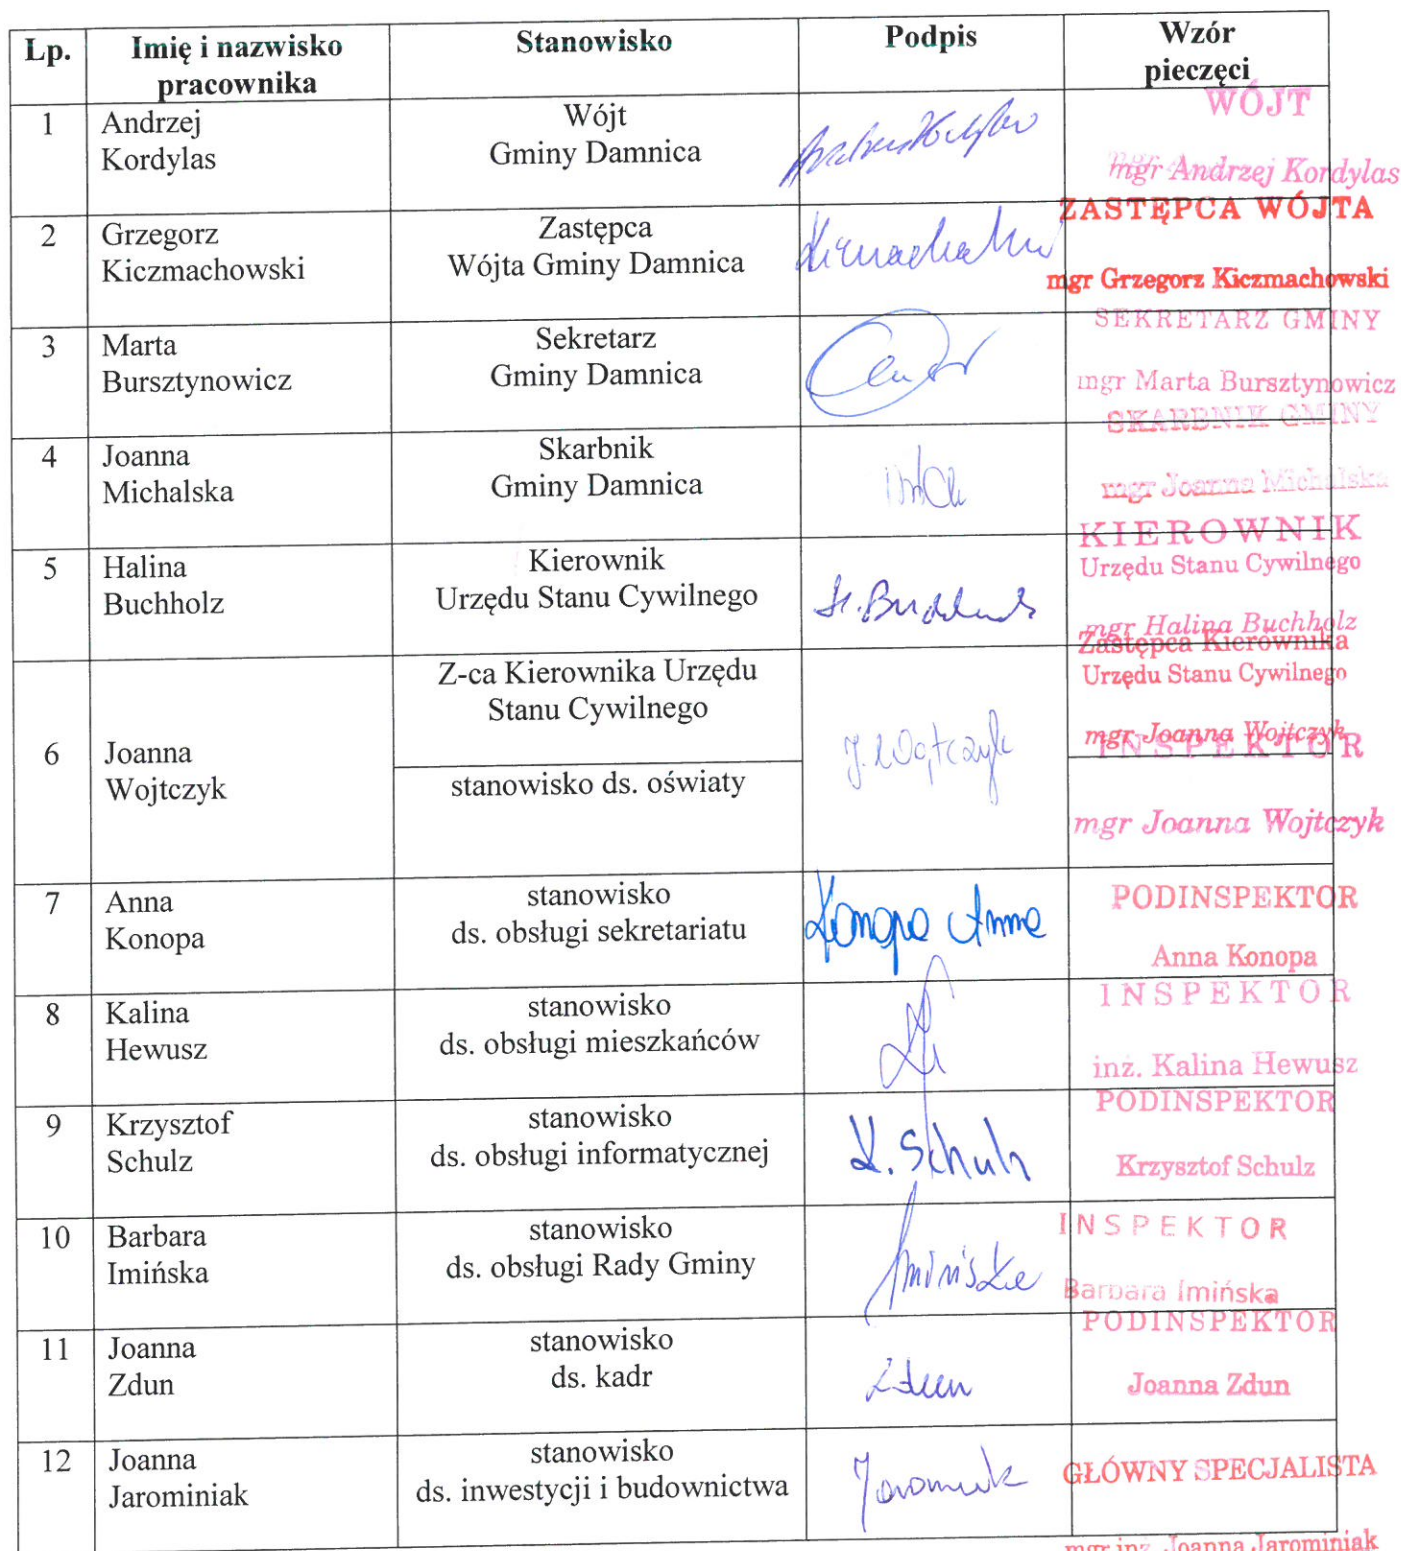 Lp.
Imię i nazwisko
pracownika
Stanowisko
Podpis
Wzór
pieczęci
1
Andrzej
Kordylas
Wójt
Gminy Damnica
WÓJT
mgr Andrzej Kordylas
2
Grzegorz
Kiczmachowski
Zastępca
Wójta Gminy Damnica
ZASTĘPCA WÓJTA
mgr Grzegorz Kiczmachowski
3
Marta
Bursztynowicz
Sekretarz
Gminy Damnica
SEKRETARZ GMINY
mgr Marta Bursztynowicz
4
Joanna
Michalska
Skarbnik
Gminy Damnica
SKARBNIK GMINY
mgr Joanna Michalska
5
Halina
Buchholz
Kierownik
Urzędu Stanu Cywilnego
KIEROWNIK
Urzędu Stanu Cywilnego
mgr Halina Buchholz
6
Joanna
Wojtczyk
Z-ca Kierownika Urzędu
Stanu Cywilnego
stanowisko ds. oświaty
J. Wojtczyk
Zastępca Kierownika
Urzędu Stanu Cywilnego
mgr Joanna Wojtczyk
INSPEKTOR
mgr Joanna Wojtczyk
7
Anna
Konopa
stanowisko
ds. obsługi sekretariatu
Konopa Anna
PODINSPEKTOR
Anna Konopa
8
Kalina
Hewusz
stanowisko
ds. obsługi mieszkańców
INSPEKTOR
inż. Kalina Hewusz
9
Krzysztof
Schulz
stanowisko
ds. obsługi informatycznej
K. Schulz
PODINSPEKTOR
Krzysztof Schulz
10
Barbara
Imińska
stanowisko
ds. obsługi Rady Gminy
Imińska
INSPEKTOR
Barbara Imińska
11
Joanna
Zdun
stanowisko
ds. kadr
Zdun
PODINSPEKTOR
Joanna Zdun
12
Joanna
Jarominiak
stanowisko
ds. inwestycji i budownictwa
GŁÓWNY SPECJALISTA
mgr inż. Joanna Jarominiak